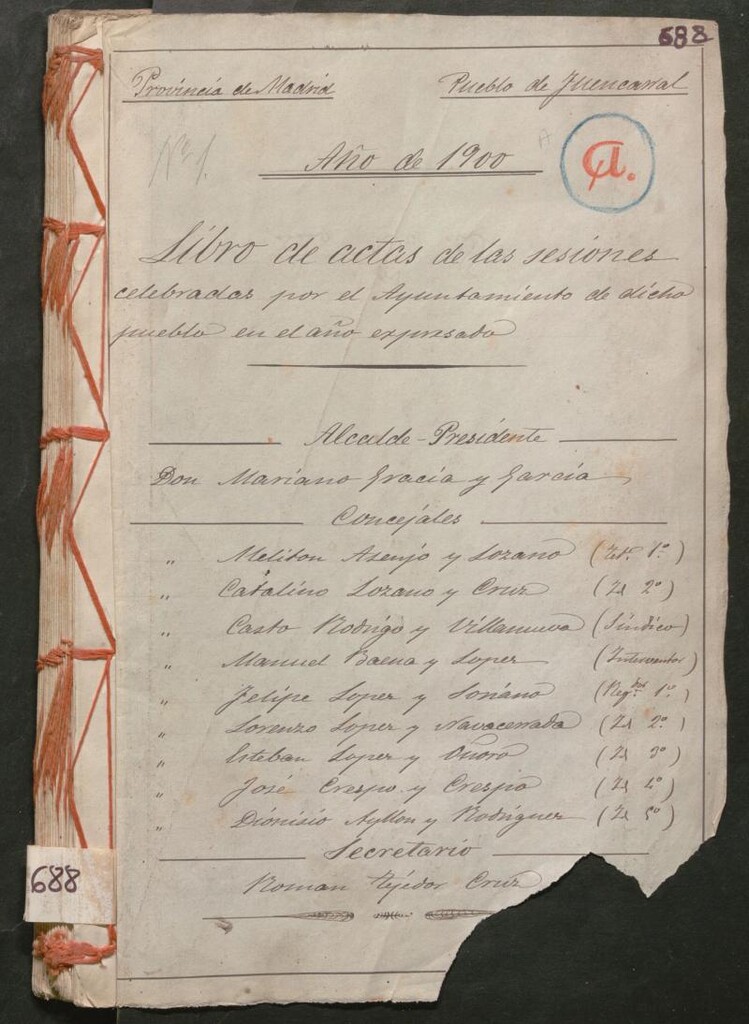 688
Provincia de Madrid Pueblo de Fuencarral
Nº 1.
A
Año de 1900
a.
Libro de actas de las sesiones
celebradas por el Ayuntamiento de dicho
pueblo en el año expresado
Alcalde-Presidente
Don Mariano Gracia y Garcia
Concejales
" Meliton Asenjo y Lozano (Tte. 1º)
" Catalino Lozano y Cruz (Id 2º)
" Casto Rodrigo y Villanueva (Síndico)
" Manuel Baena y Lopez (Interventor)
" Felipe Lopez y Soriano (Reg.dor 1º)
" Lorenzo Lopez y Navacerrada (Id 2º)
" Esteban Lopez y (Id 3º)
" José Crespo y Crespo (Id 4º)
" Dionisio Ayllon y Rodriguez (Id 5º)
Secretario
Roman Tejedor Cruz
688